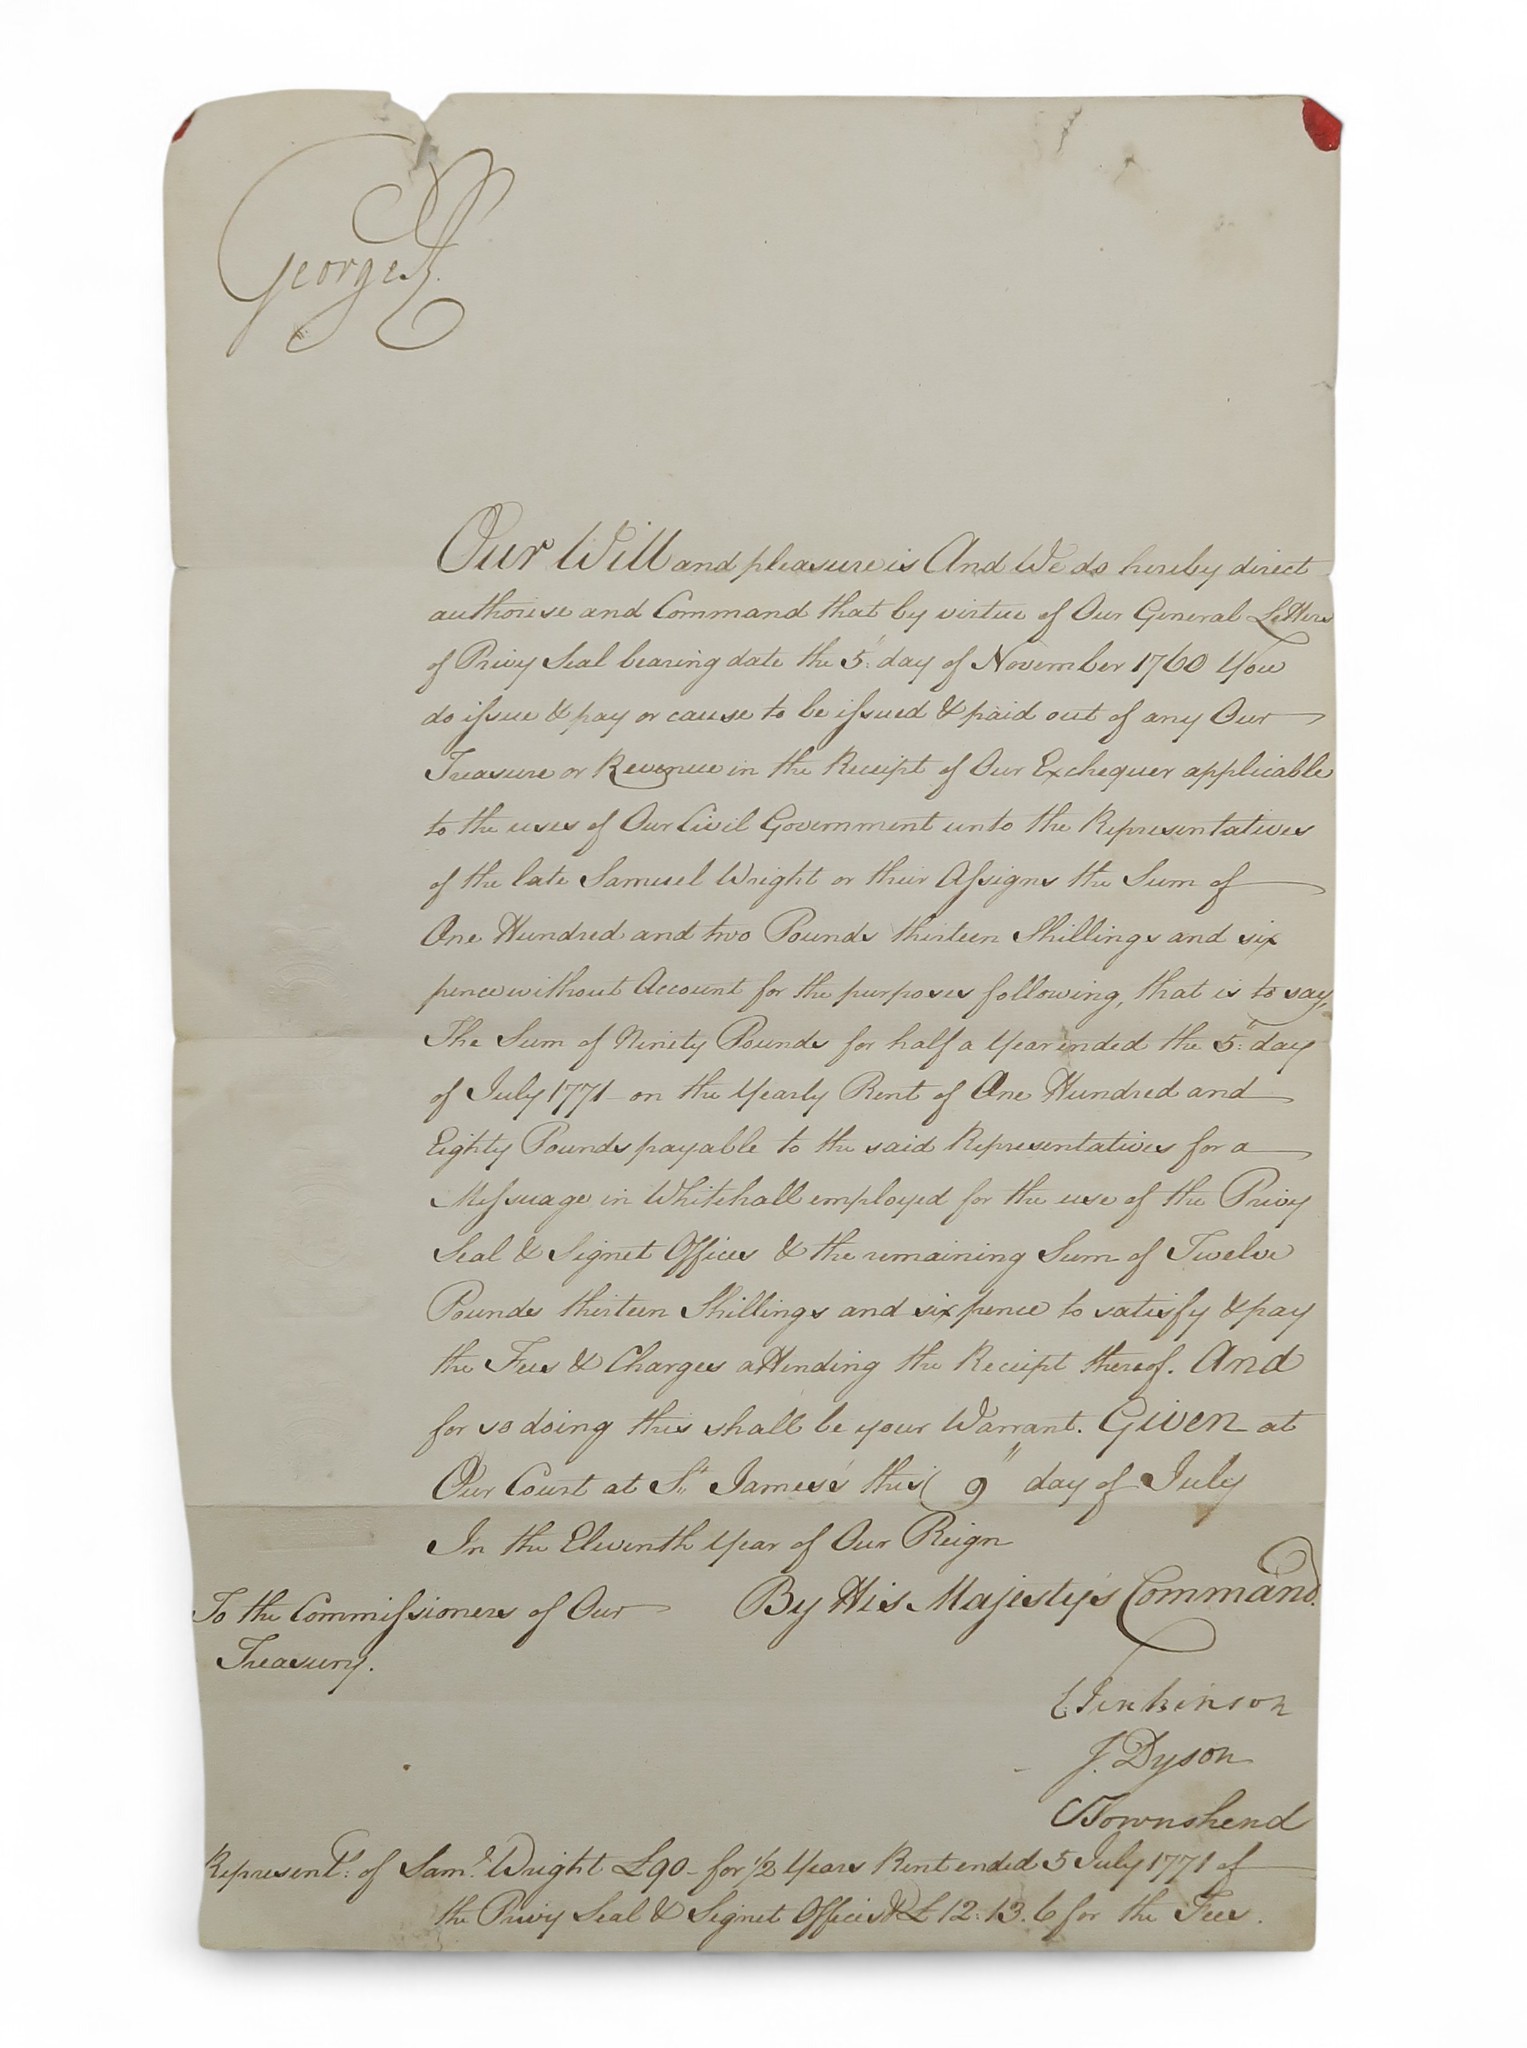 George R.
Our Will and pleasure is And We do hereby direct
authorise and Command that by virtue of Our General Letters
of Privy Seal bearing date the 5th. day of November 1760 You
do issue & pay or cause to be issued & paid out of any Our
Treasure or Revenue in the Receipt of Our Exchequer applicable
to the uses of Our Civil Government unto the Representatives
of the late Samuel Wright or their Assigns the Sum of
One Hundred and two Pounds thirteen Shillings and six
pence without Account for the purposes following, that is to say,
The Sum of Ninety Pounds for half a Year ended the 5th. day
of July 1771 on the Yearly Rent of One Hundred and
Eighty Pounds payable to the said Representatives for a
Messuage in Whitehall employed for the use of the Privy
Seal & Signet Offices & the remaining Sum of Twelve
Pounds thirteen Shillings and six pence to satisfy & pay
the Fees & Charges attending the Receipt thereof. And
for so doing this shall be your Warrant. Given at
Our Court at St. James's this 9th day of July
In the Eleventh Year of Our Reign
To the Commissioners of Our
Treasury.
By His Majesty's Command.
C Jenkinson
J. Dyson
CTownshend
Represent.s: of Sam.l Wright £90 - for 1/2 Years Rent ended 5 July 1771 of
the Privy Seal & Signet Offices & £12:13.6 for the Fees.